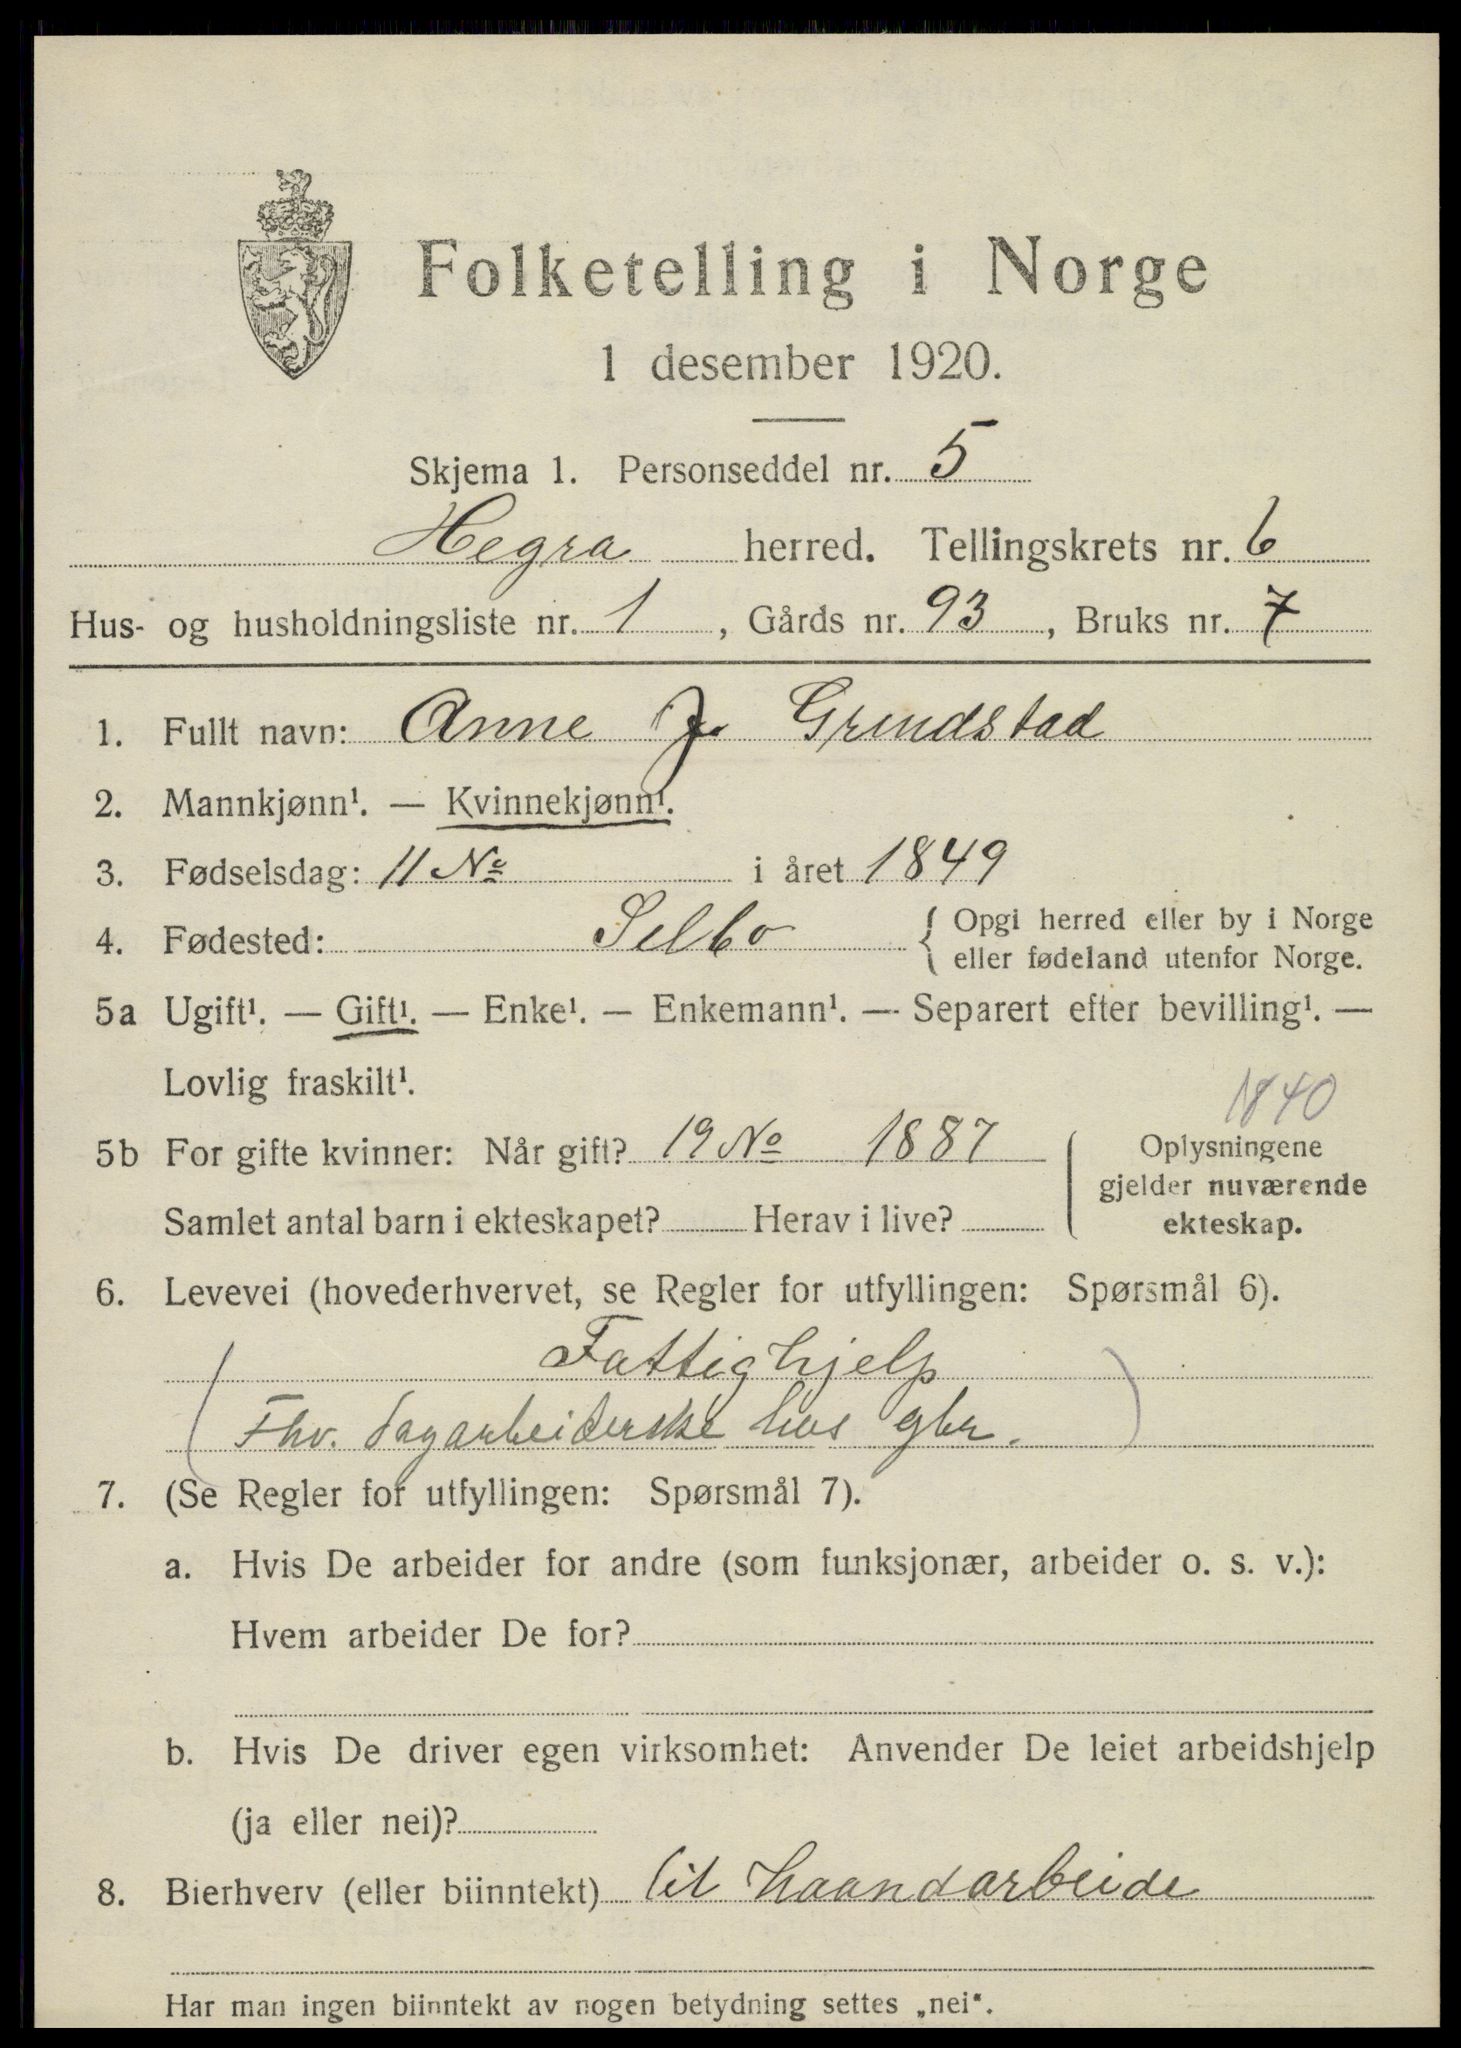 Folketelling i Norge
1 desember 1920.
Skjema 1. Personseddel nr. 5
Hegra herred. Tellingskrets nr. 6
Hus- og husholdningsliste nr. 1, Gårds nr. 93, Bruks nr. 7
1. Fullt navn: Anne J. Grindstad
2. Mannkjønn¹. — Kvinnekjønn¹.
3. Fødselsdag: 11 No i året 1849
4. Fødested: Selbo { Opgi herred eller by i Norge
eller fødeland utenfor Norge.
5a Ugift¹. — Gift¹. — Enke¹. — Enkemann¹. — Separert efter bevilling¹. —
Lovlig fraskilt¹.
1840
5b For gifte kvinner: Når gift? 19 No 1887
Samlet antal barn i ekteskapet? Herav i live?
Oplysningene
gjelder nuværende
ekteskap.
6. Levevei (hovederhvervet, se Regler for utfyllingen: Spørsmål 6).
Fattighjelp
(Fhv. dagarbeiderske hos gbr.)
7. (Se Regler for utfyllingen: Spørsmål 7).
a. Hvis De arbeider for andre (som funksjonær, arbeider o. s. v.):
Hvem arbeider De for?
b. Hvis De driver egen virksomhet: Anvender De leiet arbeidshjelp
(ja eller nei)?
8. Bierhverv (eller biinntekt) lit haandarbeide
Har man ingen biinntekt av nogen betydning settes „nei".